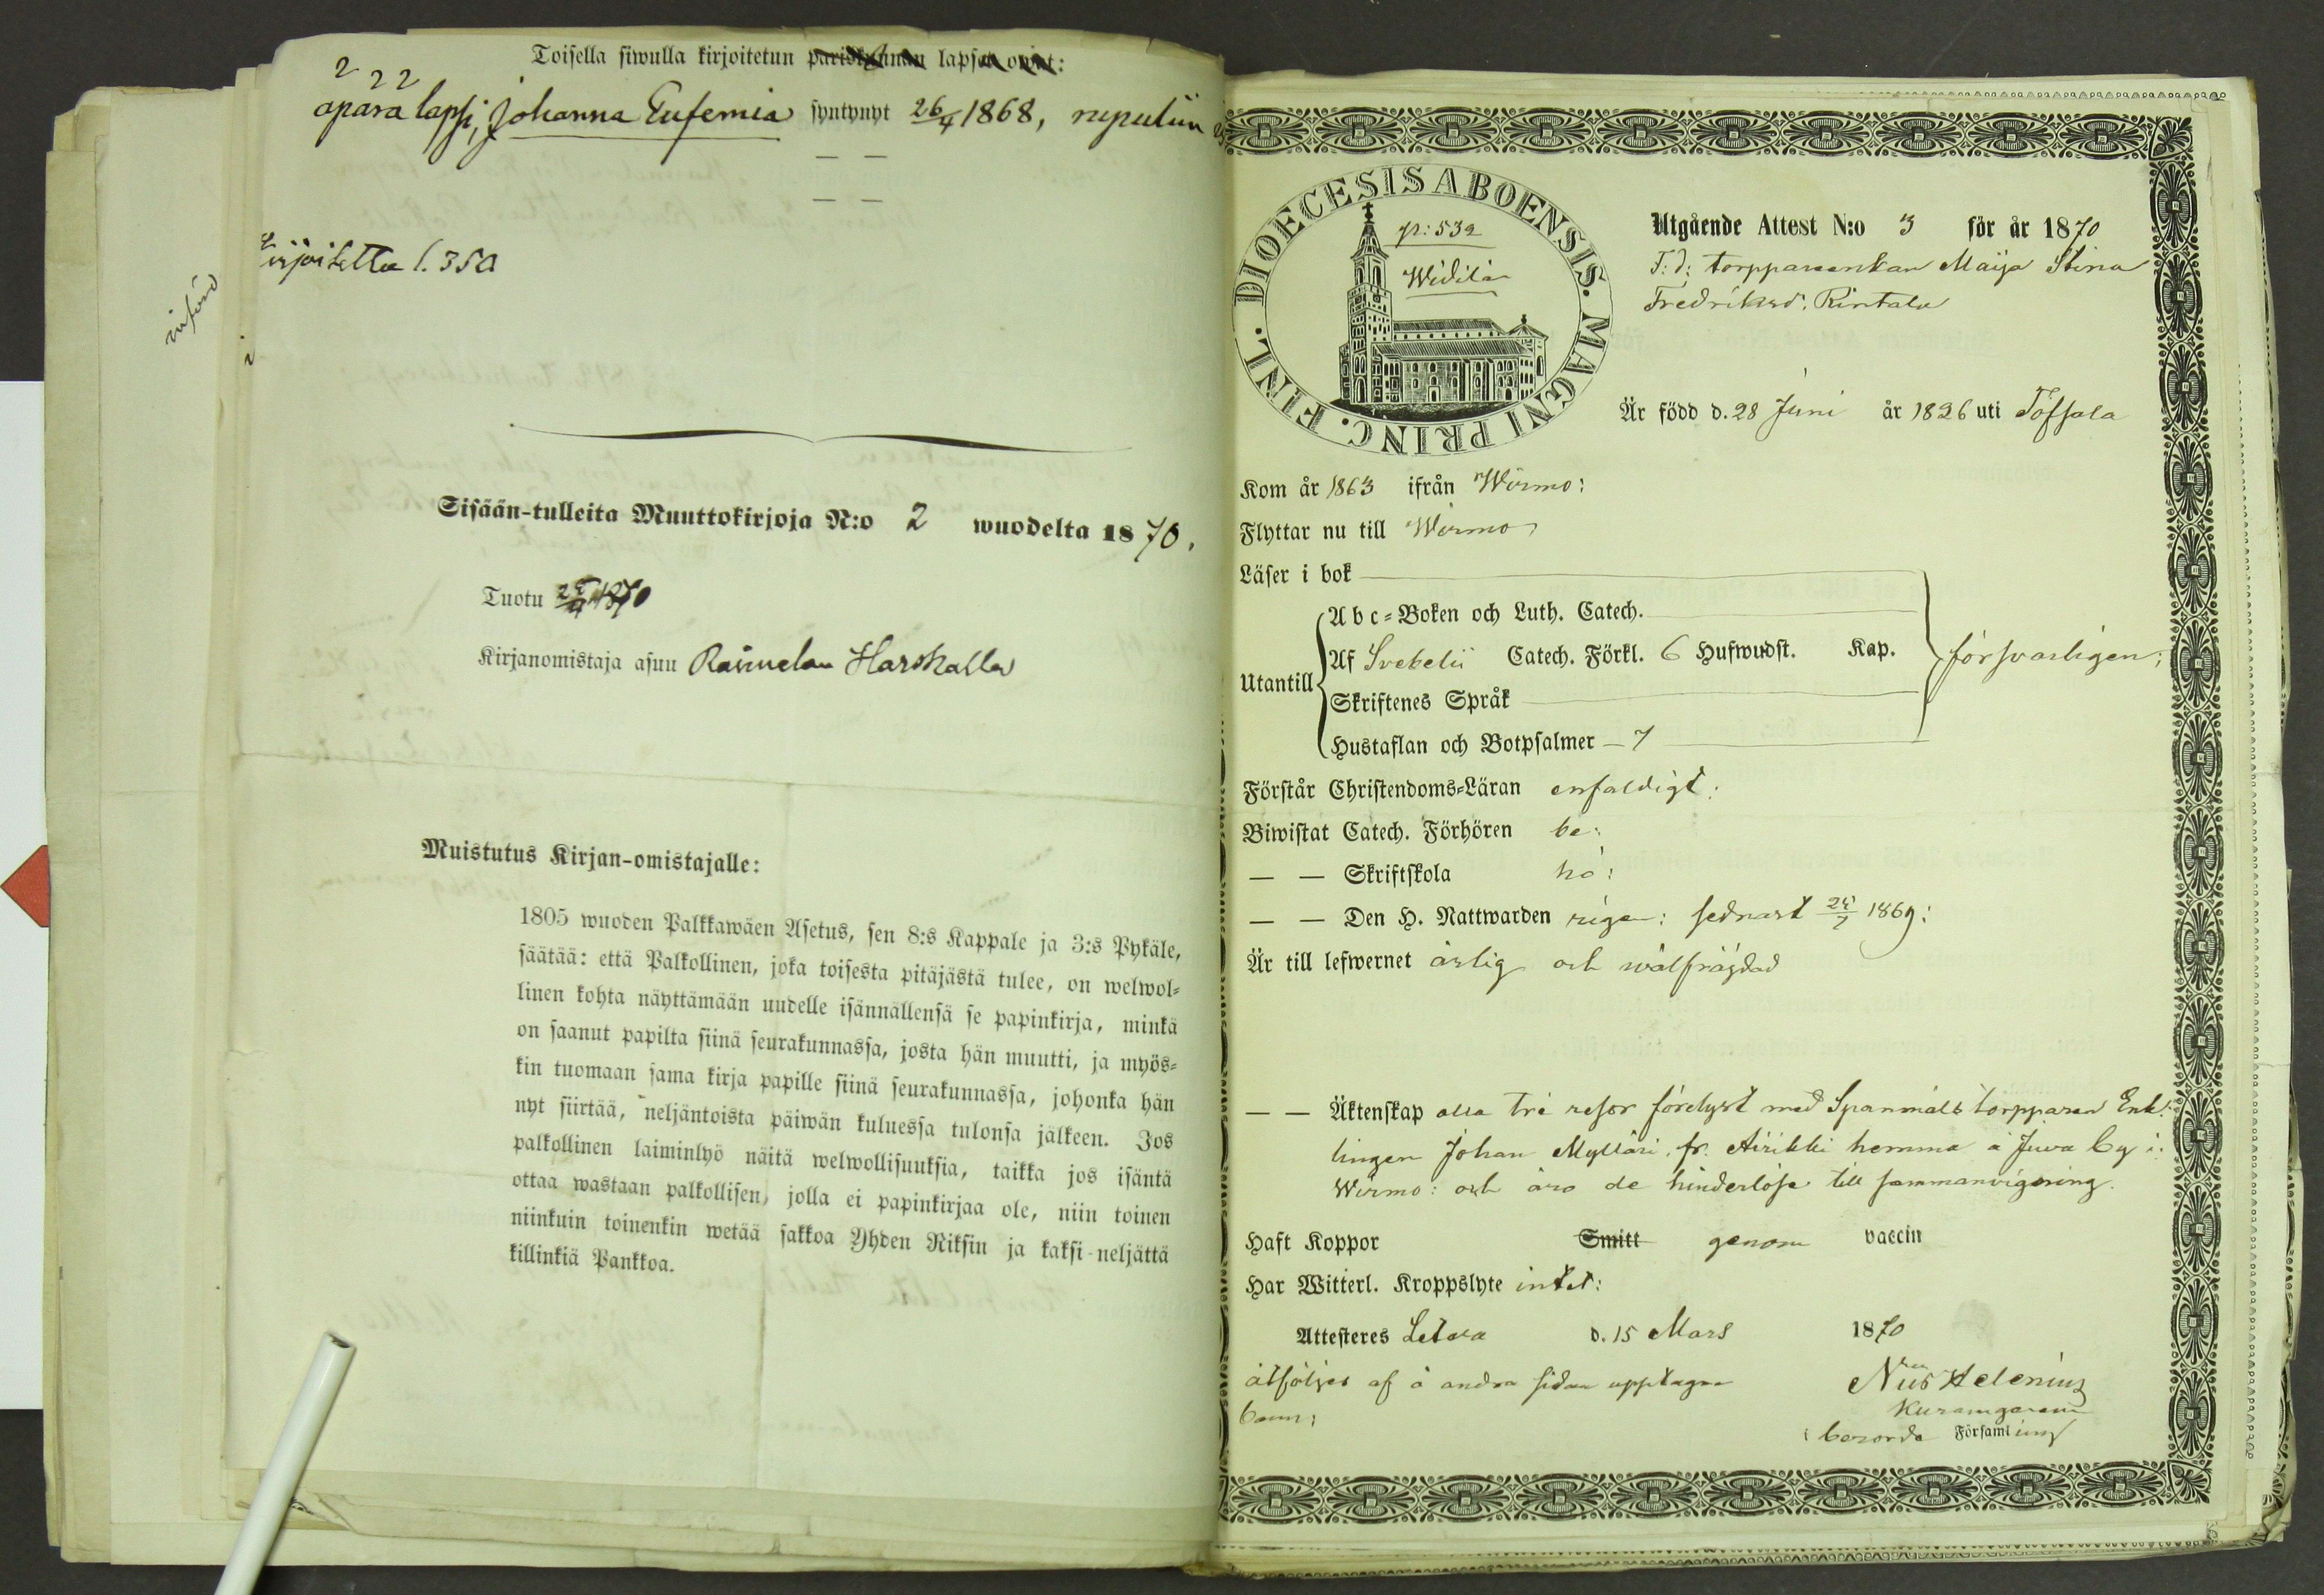 Toisella siwulla kirjoitetun pariskunnan lapset owat:
2
22
apara lapsi, Johanna Eufemia syntynyt 26/4 1868, rupulin
— —
— —
Kirjoitettu l. 35a
införd
Sisään-tulleita Muuttokirjoja N:o 2 wuodelta 1870.
Tuotu 1870
Kirjanomistaja asuu Raimelan Harskalla
Muistutus Kirjan-omistajalle:
1805 wuoden Palkkawäen Asetus, sen 8:s Kappale ja 3:s Pykäle,
säätää: että Palkollinen, joka toisesta pitäjästä tulee, on welwol-
linen kohta näyttämään uudelle isännällensä se papinkirja, minkä
on saanut papilta siinä seurakunnassa, josta hän muutti, ja myös-
kin tuomaan sama kirja papille siinä seurakunnassa, johonka hän
nyt siirtää, neljäntoista päiwän kuluessa tulonsa jälkeen. Jos
palkollinen laiminlyö näitä welwollisuuksia, taikka jos isäntä
ottaa wastaan palkollisen, jolla ei papinkirjaa ole, niin toinen
niinkuin toinenkin wetää sakkoa Yhden Riksin ja kaksi neljättä
killinkiä Pankkoa.
DIOECESIS ABOENSIS. MAGNI PRINC. FINL.
p: 532
Widilä
Utgående Attest N:o 3 för år 1870
F: d: torppareenkan Maija Stina
Fredriksd: Rintala
Är född d. 28 Juni år 1826 uti Töfsala
Kom år 1863 ifrån Wirmo:
Flyttar nu till Wirmo
Läser i bok
Abc-Boken och Luth. Catech.
Utantill
Af Svebelii Catech. Förkl. 6 Hufwudst. Kap.
försvarligen;
Skriftenes Språk
Hustaflan och Botpsalmer — 7
Förstår Christendoms-Läran enfaldigt:
Biwistat Catech. Förhören be:
— — Skriftskola hö:
— — Den H. Nattwarden rigen: sednast 25/7 1869:
Är till lefwernet ärlig och wälfrägdad
— — Äktenskap alla tre resor förelyst med Spanmåls torpparen Enk-
lingen Johan Mylläri fr. Airikki hemma å Juva by i
Wirmo: och äro de hinderlöse till sammanvigning.
Haft Koppor Smitt genom vaccin
Har Witterl. Kroppslyte intet:
Attesteres Letala d. 15 Mars 1870
åtföljes af å andra sidan upptagne
barn;
Nils Helenius
i berörda Församling